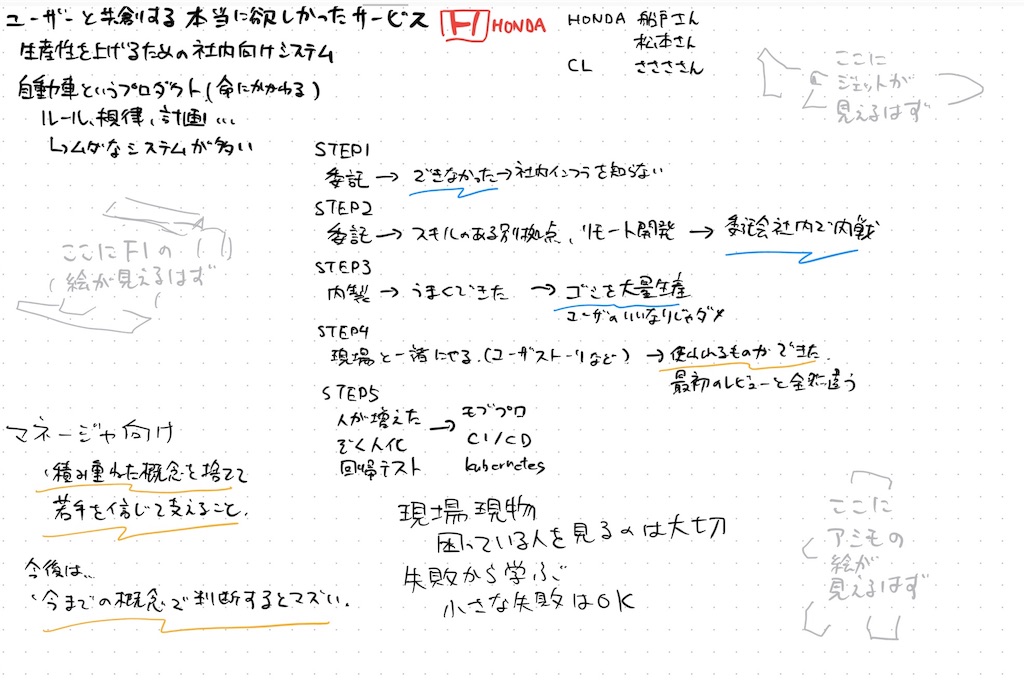 ユーザーと共創する 本当に欲しかったサービス
HONDA
HONDA 船戸さん
松本さん
CL ささささん
生産性を上げるための社内向けシステム
自動車というプロダクト(命にかかわる)
ルール、規律、計画...
↳ムダなシステムが多い
ここに
ジェットが
見えるはず
STEP1
委託→できなかった→社内インフラを知らない
STEP2
委託→スキルのある別拠点、リモート開発→委託会社内で内戦
STEP3
内製→うまくできた→ゴミを大量生産
ユーザのいいなりじゃダメ
ここにF1の
絵が見えるはず
STEP4
現場と一緒にやる.(ユーザストーリなど)→使われるものができた.
最初のレビューと全然違う
STEP5
人が増えた→モブプロ
ぞく人化 CI/CD
回帰テスト kubernetes
マネージャ向け
積み重ねた概念を捨てて
若手を信じて支えること.
今後は、
今までの概念で判断するとマズい.
現場現物
困っている人を見るのは大切
失敗から学ぶ
小さな失敗はOK
ここに
アシモの
絵が
見えるはず